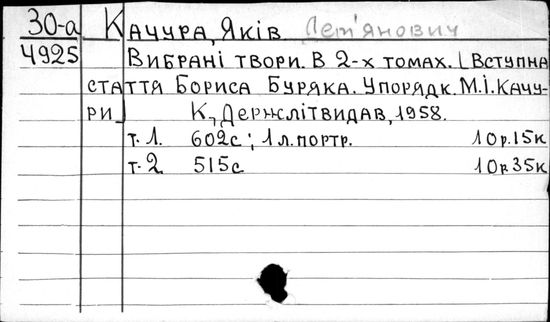 30-а Качура, Яків Дем'янович
4925 Вибрані твори. В 2-х томах. [Вступна
стаття Бориса Буряка. Упорядк. М.І. Качу-
ри] К., Держлітвидав, 1958.
т. 1. 602с; 1 л. портр. 10р.15к
т. 2 515с 10р35к